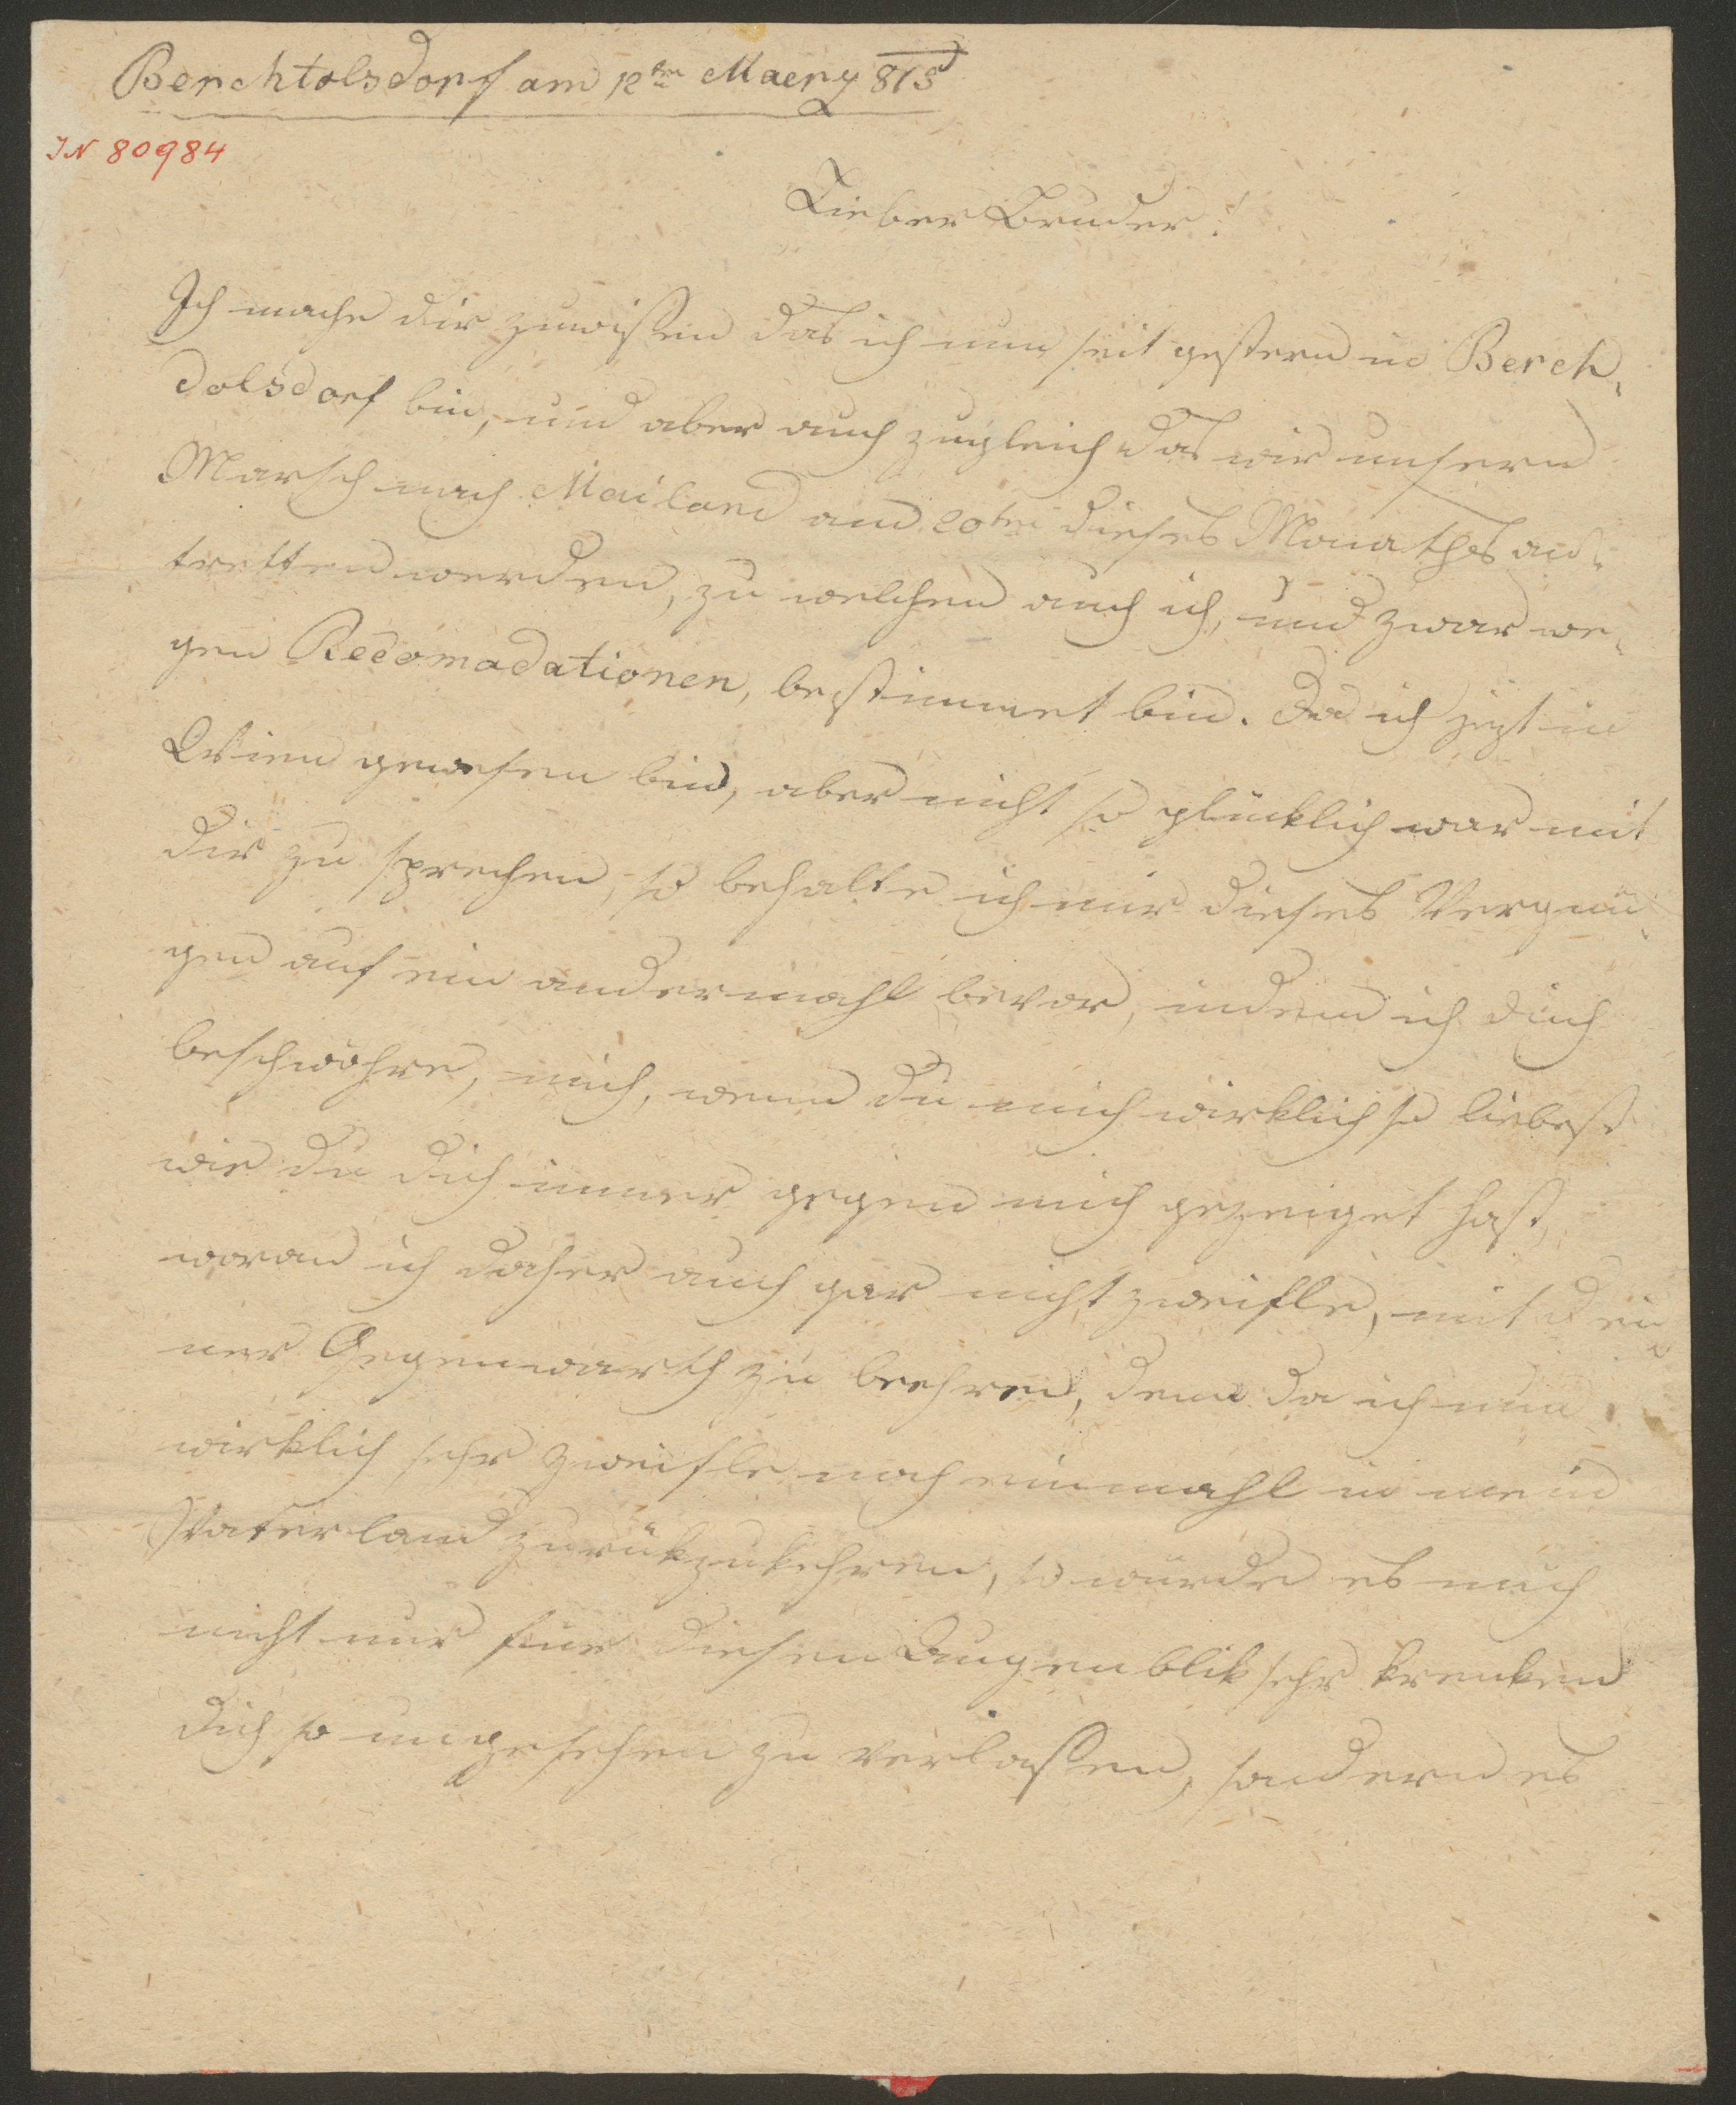 Berchtolsdorf am 12ten Maerz 815
IN 80984
Lieber Bruder!
Ich mache dir zuwißen das ich nun seit gestern in Berch-
dolsdorf bin, und aber auch zugleich das wir unsern
Marsch nach Mailand am 20ten dieses Monathes an-
tretten werden, zu welchen auch ich, und zwar we-
gen Recomadationen, bestimmet bin. Da ich jezt in
Wien gewesen bin, aber nicht so glücklich war mit
dir zu sprechen, so behalte ich mir dieses Vergnü-
gen auf ein andermahl bevor, indem ich dich
beschwöhre, mich, wenn du mich wirklich so liebest
wie du dich immer gegen mich gezeiget hast,
woran ich daher auch gar nicht zweifle, mit dei
ner Gegenwarth zu beehren, denn da ich nun
wirklich sehr zweifle noch einmahl in mein
Vaterland zurükzukehren, so würde es mich
nicht nur für diesen Augenblik sehr krenken
dich so ungesehen zu verlaßen, sondern es